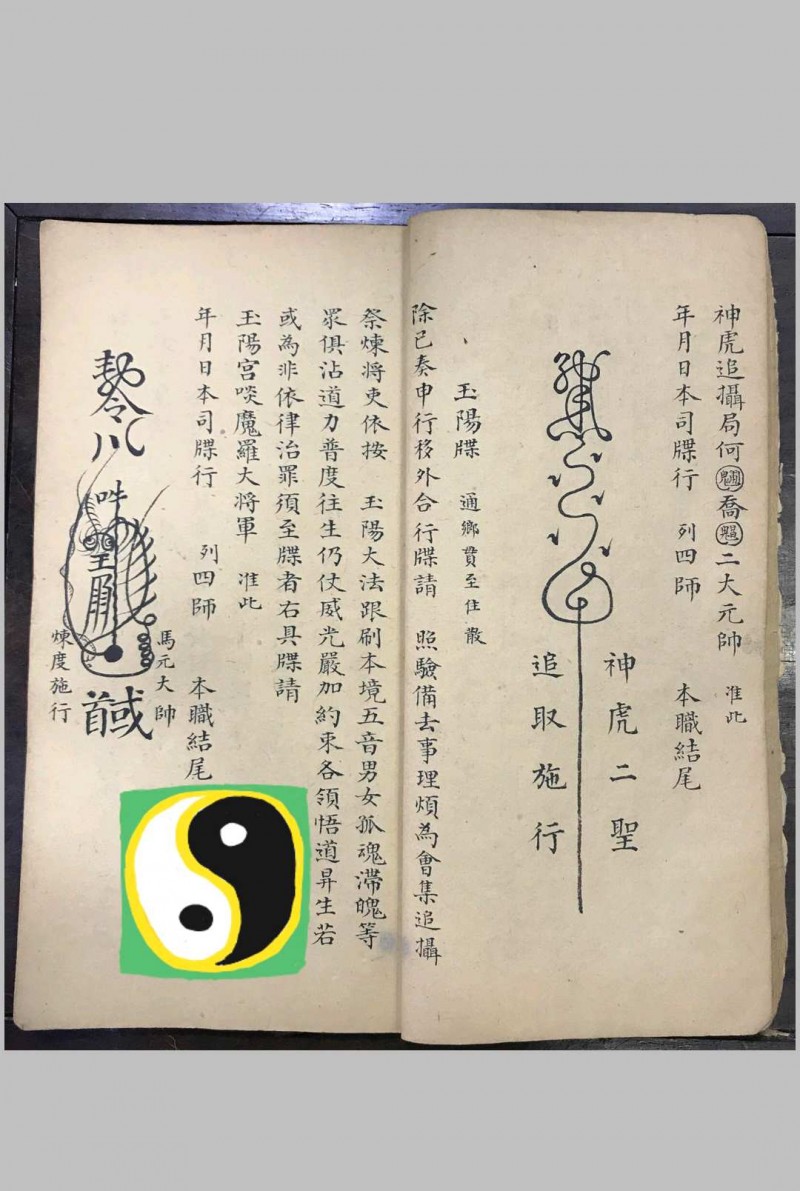 神虎追攝局何喬二大元帥 准此
年月日本司牒行 列四師 本職結尾
神虎二聖
追取施行
玉陽牒 通鄉貫至住散
除已奏申行移外合行牒請 照驗備去事理煩為會集追攝
祭煉將吏依按 玉陽大法跟刷本境五音男女孤魂滯魄等
眾俱沾道力普度往生仍仗威光嚴加約束各領悟道昇生若
或為非依律治罪須至牒者右具牒請
玉陽宮啖魔羅大將軍 准此
年月日本司牒行 列四師 本職結尾
馬元大帥
煉度施行